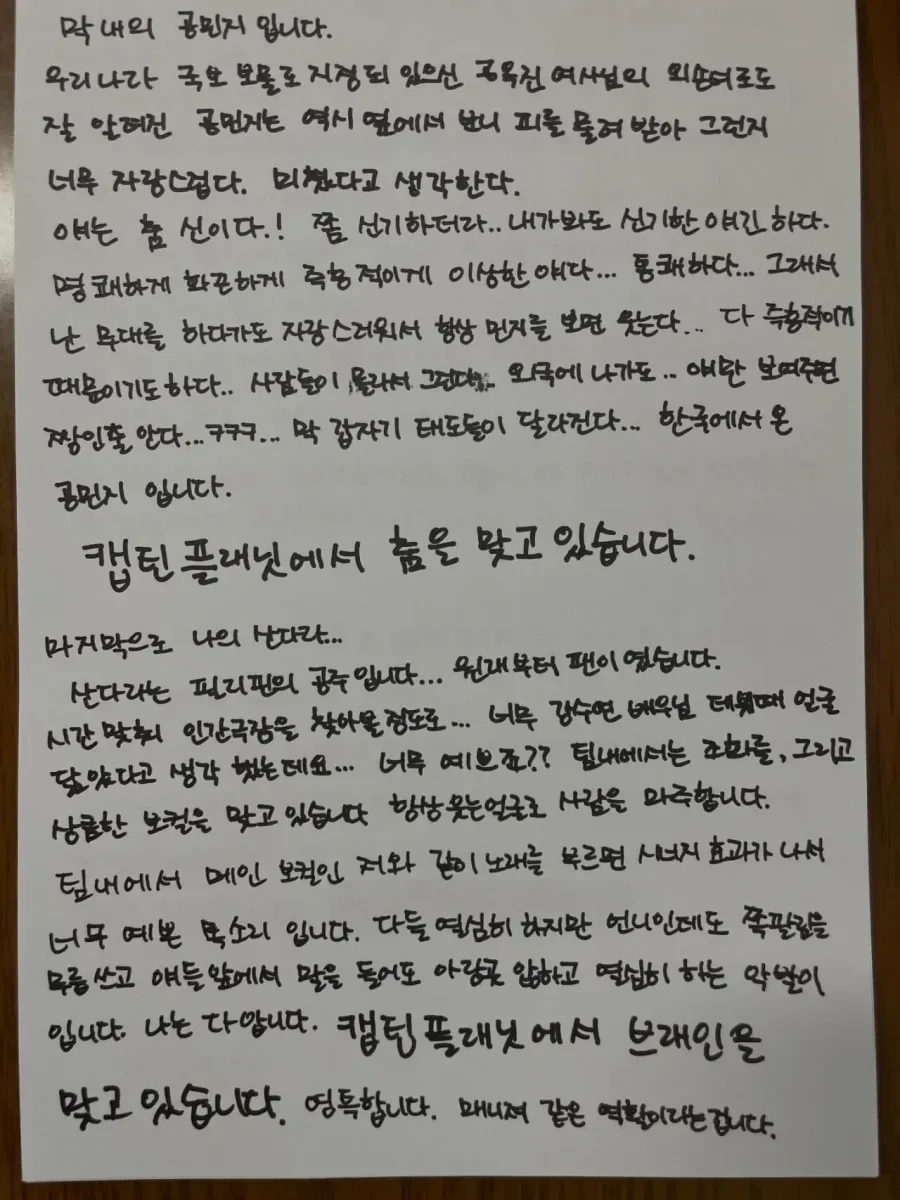 막내의 공민지 입니다.
우리나라 국보 보물로 지정되 있으신 공옥진 여사님의 외손녀로도
잘 알려진 공민지는 역시 옆에서 보니 피를 물려 받아 그런지
너무 자랑스럽다. 미쳤다고 생각한다.
얘는 춤 신이다.! 쫌 신기하더라.. 내가봐도 신기한 얘긴 하다.
명쾌하게 화끈하게 즉흥적이게 이상한 얘다... 통쾌하다... 그래서
난 무대를 하다가도 자랑스러워서 항상 민지를 보면 웃는다... 다 즉흥적이기
때문이기도 하다.. 사람들이 몰라서 그런다.. 외국에 나가도.. 얘만 보여주면
짱인줄 안다...ㅋㅋㅋ... 막 갑자기 태도들이 달라진다... 한국에서 온
공민지 입니다.
캡틴 플래닛에서 춤을 맞고 있습니다.
마지막으로 나의 산다라...
산다라는 필리핀의 공주입니다... 원래부터 팬이였습니다.
시간 맞춰 인간극장을 찾아볼 정도로... 너무 강수연 배우님 데뷔때 얼굴
닮았다고 생각 했는데요... 너무 예쁘죠?? 팀내에서는 조화를, 그리고
상큼한 보컬을 맞고 있습니다 항상 웃는얼굴로 사람을 마주합니다.
팀내에서 메인 보컬인 저와 같이 노래를 부르면 시너지 효과가 나서
너무 예쁜 목소리 입니다. 다들 열심히 하지만 언니인데도 쪽팔림을
무릅쓰고 얘들앞에서 말을 들어도 아랑곳 않하고 열심히 하는 악발이
입니다. 나는 다 압니다. 캡틴플래닛에서 브레인을
맞고 있습니다. 영특합니다. 매니져 같은 역할이라는겁니다.